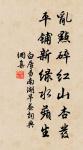 亂點碎紅山杏發
平鋪新綠水蘋生
白居易南湖早春詞典
網集